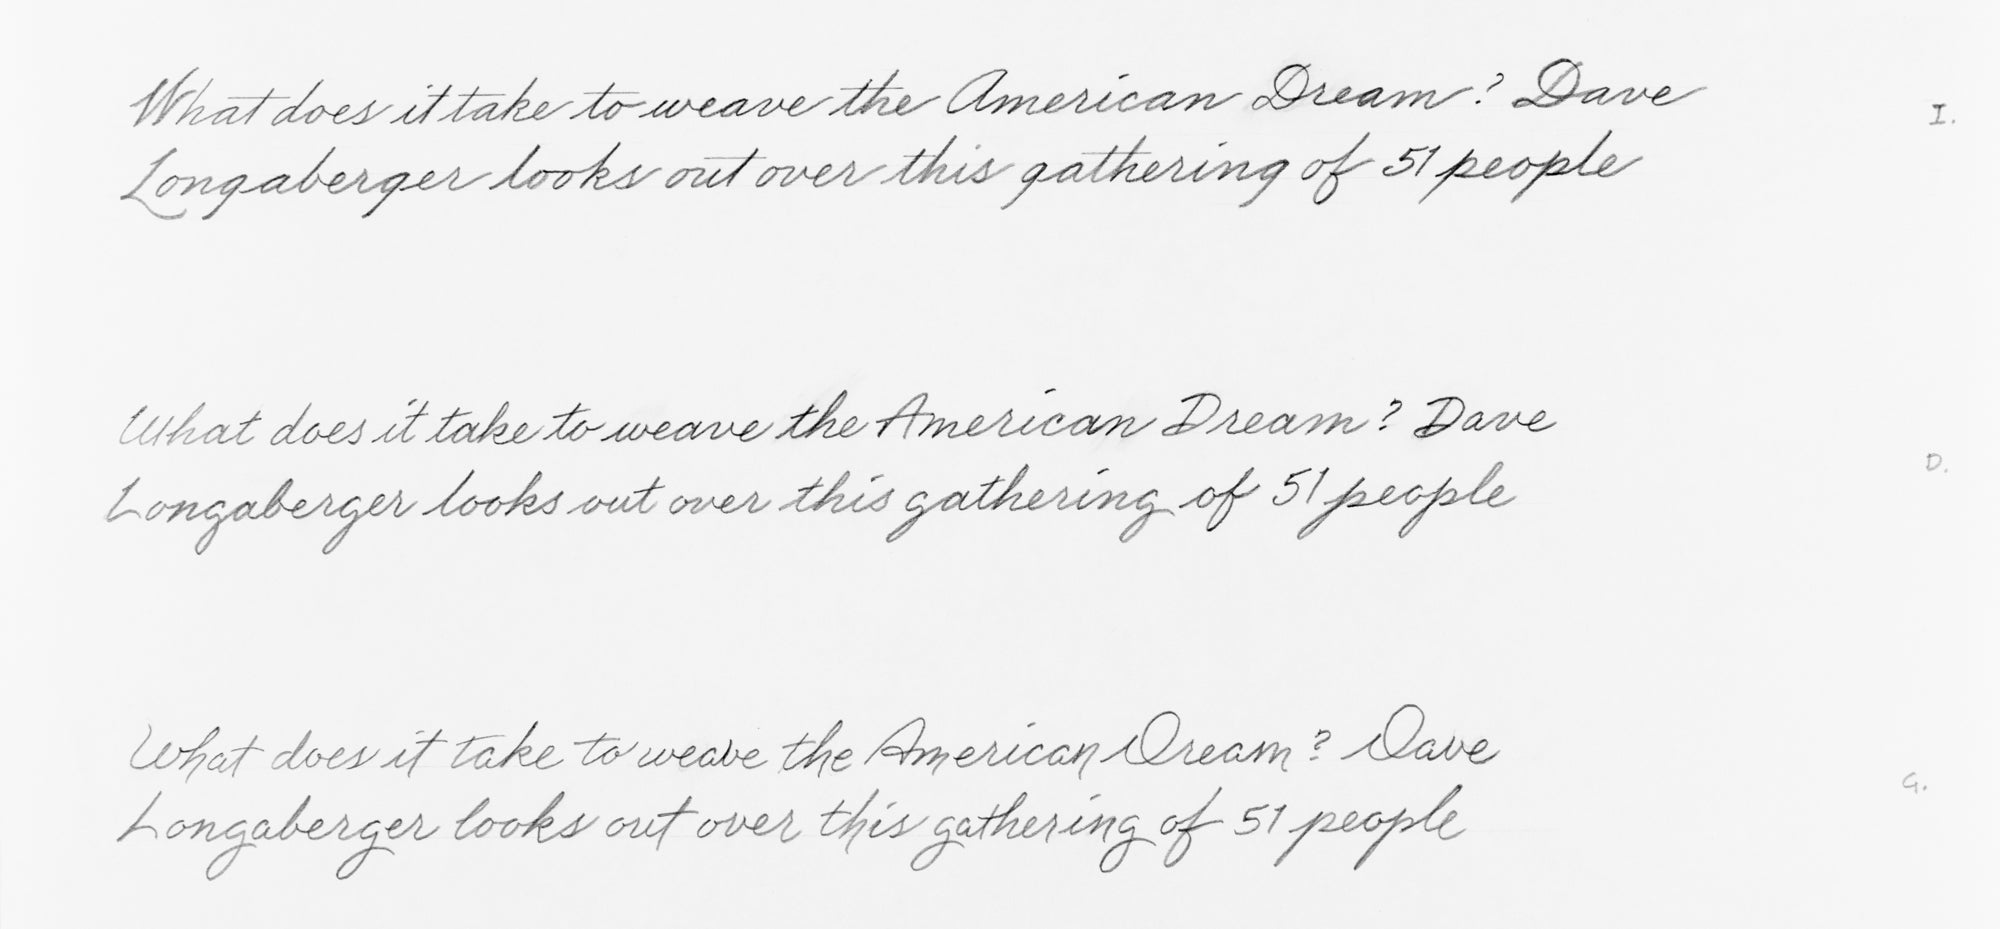 What does it take to weave the American Dream? Dave
I.
Longaberger looks out over this gathering of 51 people
What does it take to weave the American Dream? Dave
D.
Longaberger looks out over this gathering of 51 people
What does it take to weave the American Dream? Dave
G.
Longaberger looks out over this gathering of 51 people